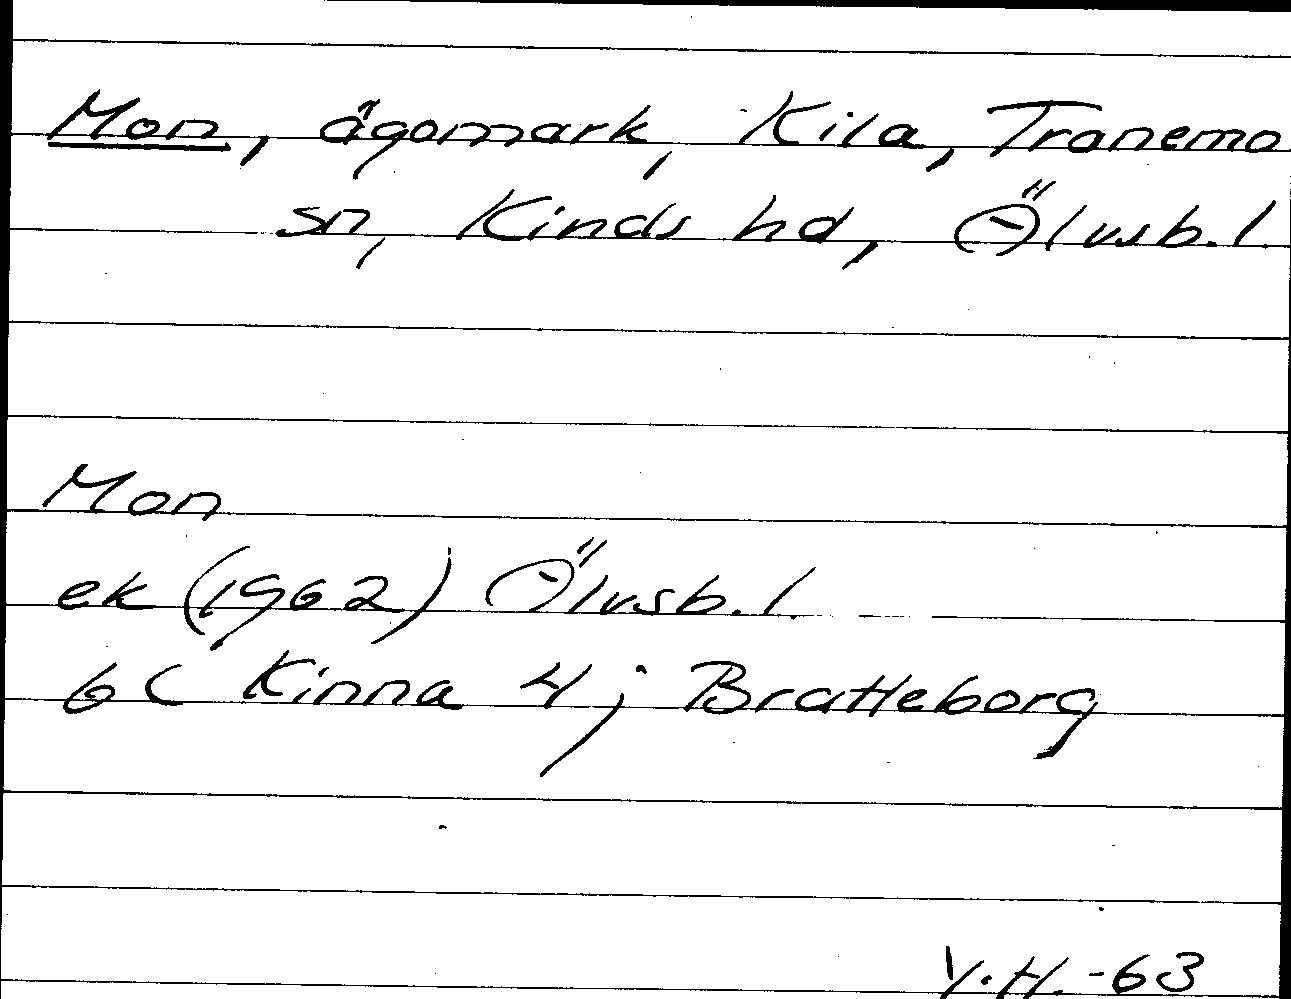 Mon, ägomark, Kila, Tranemo
sn, Kinds hd, Älvsb. l.
Mon
ek (1962) Älvsb. l.
6C Kinna 4 j Bratteborg
V.H. -63